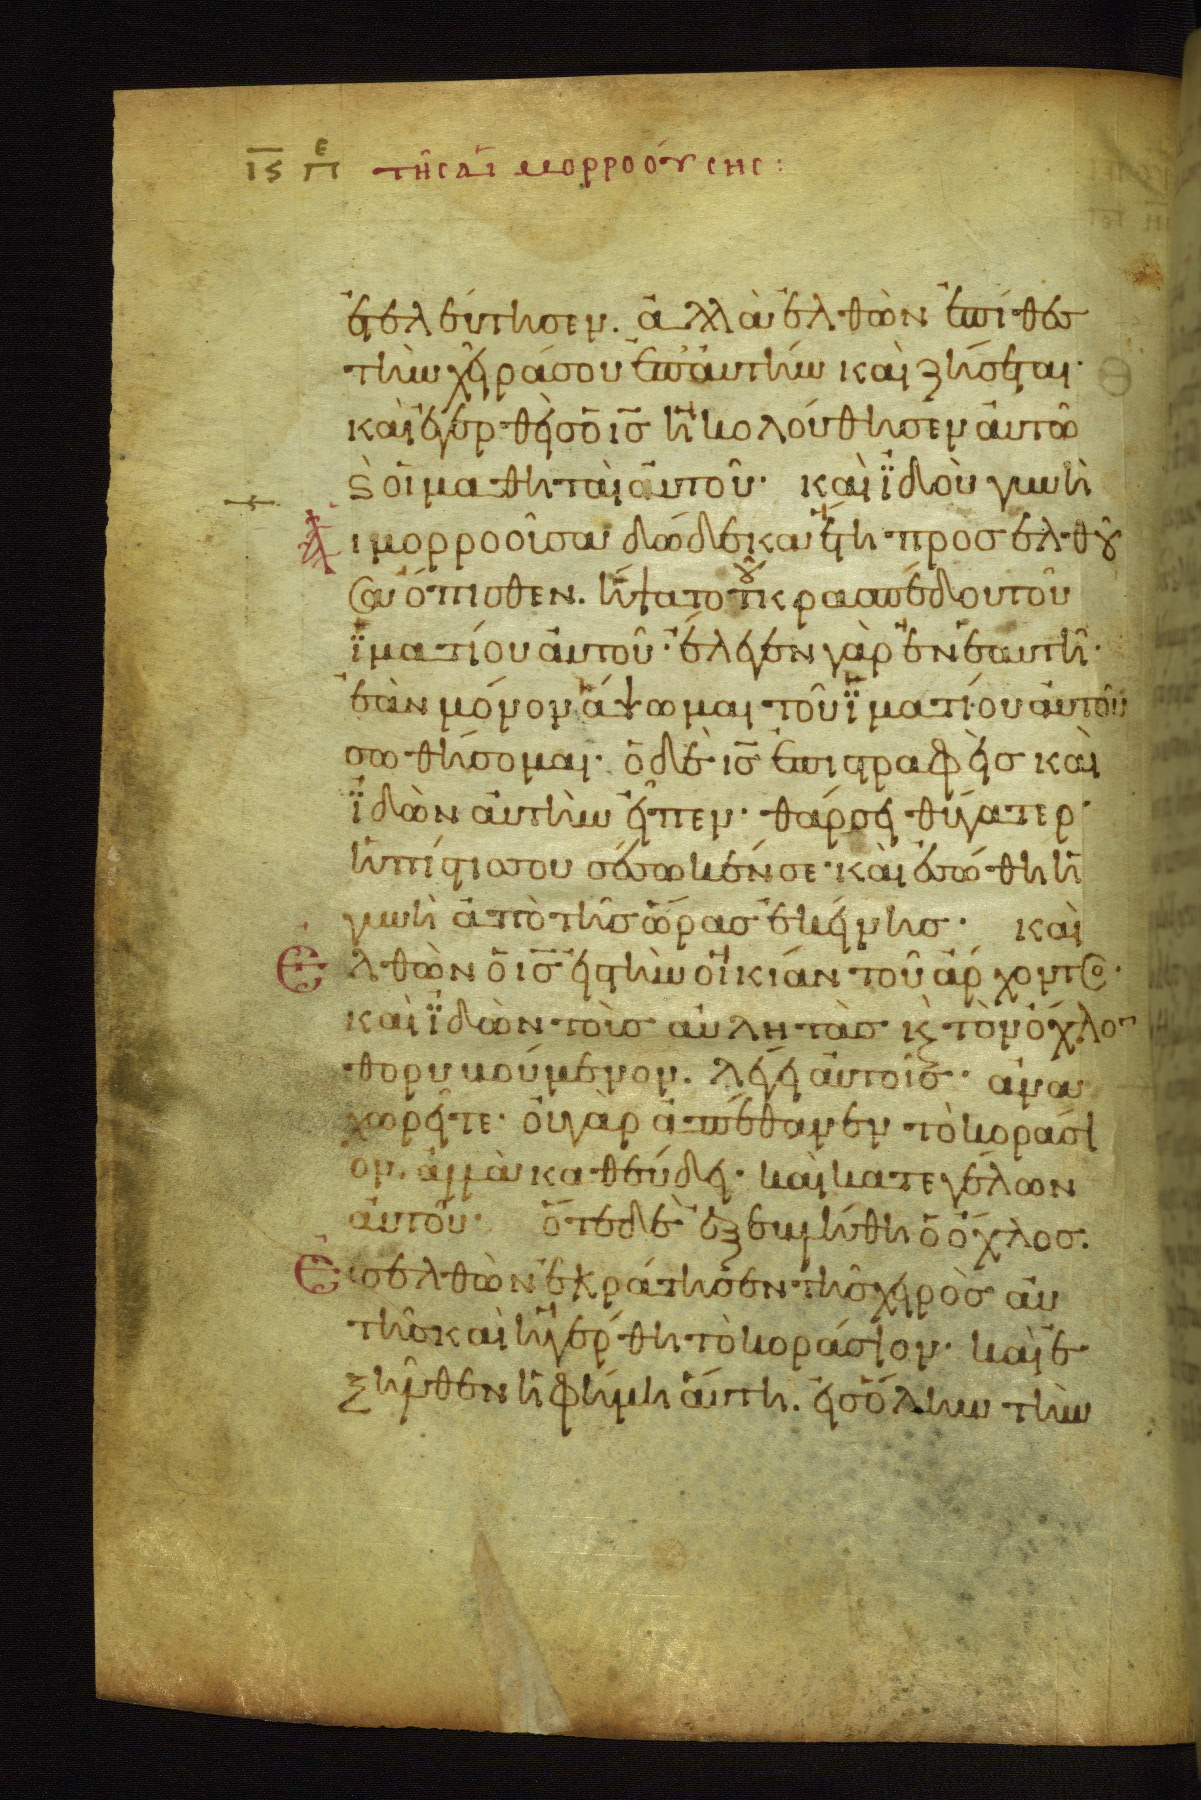 ιϛ πε τῆς αἱμορροούσης:
ἐτελεύτησεν. ἀλλὰ ἐλθὼν ἐπίθες
τὴν χεῖρά σου ἐπ' αὐτὴν καὶ ζήσεται·
καὶ ἐγερθεὶς ὁ ις ἠκολούθησεν αὐτῶ
ϗ οἱ μαθηταὶ αὐτοῦ· καὶ ἰδοὺ γυνὴ
αἱμορροοῦσα δώδεκα ἔτη προσελθοῦ
σα ὄπισθεν. ἥψατο τοῦ κρασπέδου τοῦ
ἱματίου αὐτοῦ· ἔλεγεν γὰρ ἐν ἑαυτῆ·
ἐὰν μόνον ἅψωμαι τοῦ ἱματίου αὐτοῦ
σωθήσομαι· ὁ δὲ ις ἐπιστραφεὶς καὶ
ἰδὼν αὐτὴν εἶπεν· θάρσει θύγατερ·
ἡ πίστις σου σέσωκέν σε· καὶ ἐσώθη ἡ
γυνὴ ἀπὸ τῆς ὥρας ἐκείνης· καὶ
ἐλθὼν ὁ ις εἰς τὴν οἰκίαν τοῦ ἄρχοντος·
καὶ ἰδὼν τοὺς αὐλητὰς ϗ τὸν ὄχλον
θορυβούμενον. λέγει αὐτοῖς· ἀνα
χωρεῖτε· οὐ γὰρ ἀπέθανεν τὸ κοράσι
ον. ἀλλὰ καθεύδει· καὶ κατεγέλων
αὐτοῦ· ὅτε δὲ ἐξεβλήθη ὁ ὄχλος.
εἰσελθὼν ἐκράτησεν τῆς χειρὸς αὐ
τῆς καὶ ἠγέρθη τὸ κοράσιον· καὶ ἐ
ξῆλθεν ἡ φήμη αὕτη. εἰς ὅλην τὴν